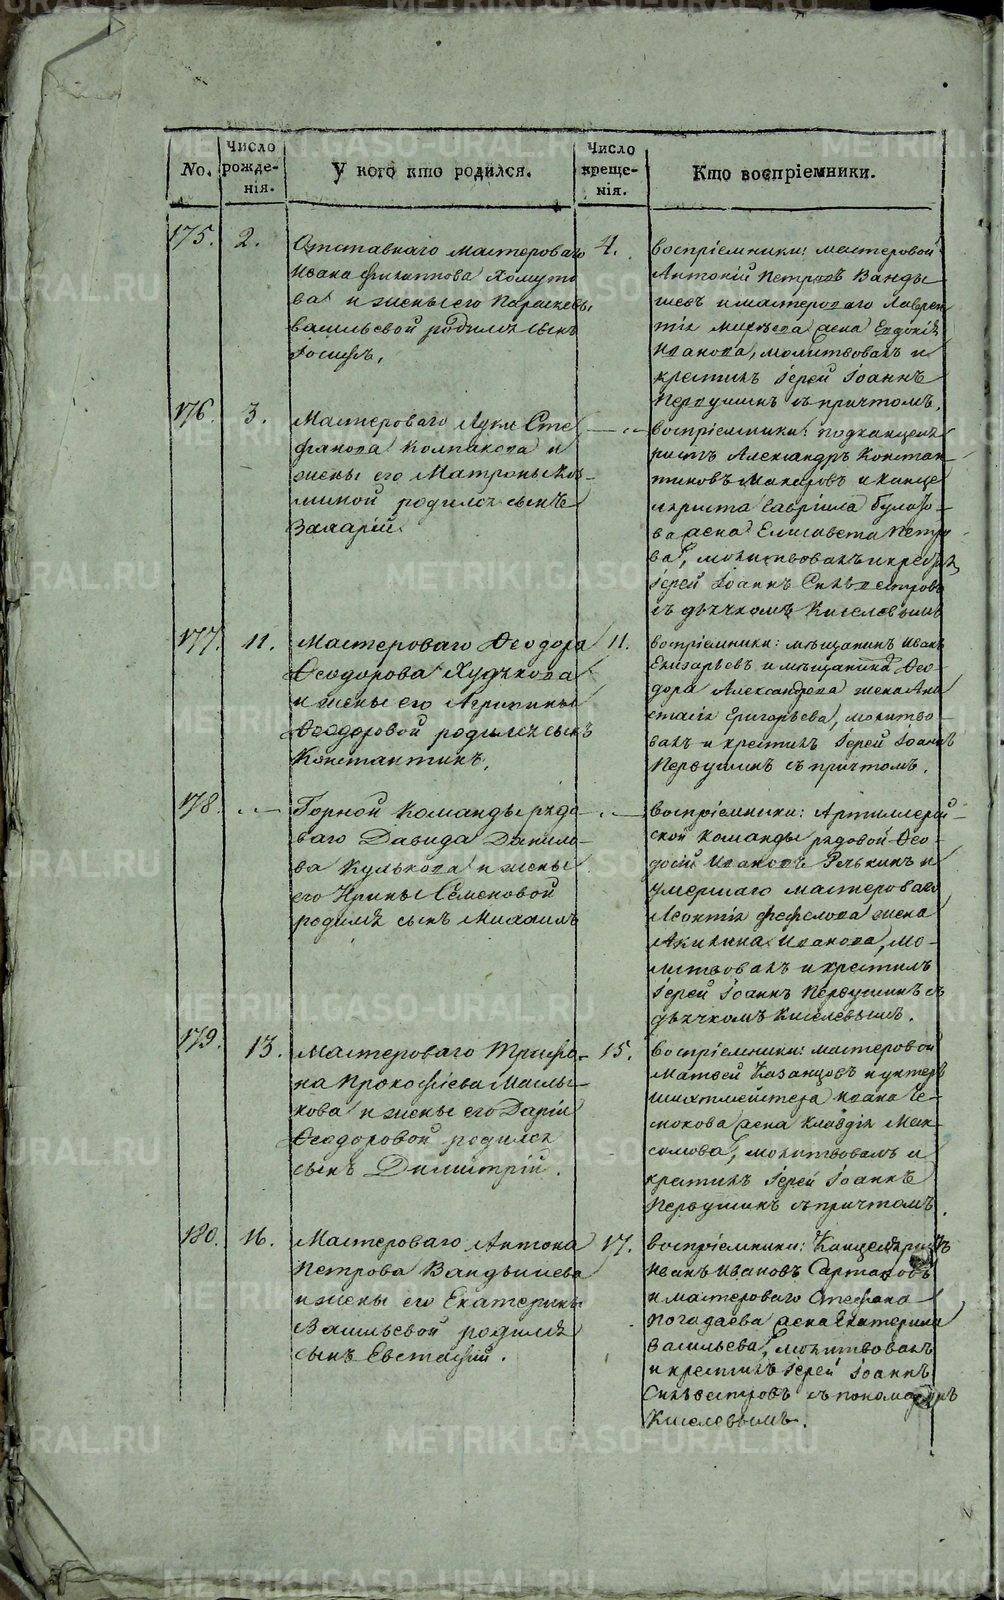 No.
Число
рожде-
нія.
У кого кто родился.
Число
креще-
нія.
Кто воспріемники.
175. 2.
Отставнаго мастероваго
Ивана Филиппова Хомуто
ва и жены его Параскевы
Васильевой родился сынъ
Іосифъ.
4.
воспріемники: мастеровой
Антоній Петровъ Ванды
шевъ и мастероваго Лаврен
тія жена Евдокія
Иванова, молитвовалъ и
крестилъ Іерей Іоаннъ
Первушинъ съ причтомъ.
176. 3.
Мастероваго Луки Сте
фанова Колпакова и
жены его Матроны Коз-
миной родился сынъ
Захарій.
— „ —
воспріемники: подканцеля
ристъ Александръ Констан-
тиновъ Макаровъ и канце
ляриста Гавріила
жена Елисавета Петро
ва, молитвовалъ и крестилъ
Іерей Іоаннъ Сильвестровъ
съ дьячкомъ Киселевымъ
177. 11.
Мастероваго Ѳеодора
Ѳеодорова Худякова
и жены его Агрипины
Ѳеодоровой родился сынъ
Константинъ.
11.
воспріемники: мѣщанинъ Иванъ
Елизарьевъ и мѣщанина Ѳео
дора Александрова жена Ана
стасія Григорьева, молитво-
валъ и крестилъ Іерей Іоаннъ
Первушинъ съ причтомъ.
178. — „ —
Горной команды рядо
ваго Давида Данило-
ва Кулькова и жены
его Ирины Семеновой
родился сынъ Михаилъ
— „ —
воспріемники: Артиллерій-
ской команды рядовой Ѳео-
досій Ивановъ Репкинъ и
умершаго мастероваго
Леонтія Фефелова жена
Акилина Иванова, мо-
литвовалъ и крестилъ
Іерей Іоаннъ Первушинъ съ
дьячкомъ Киселевымъ.
179. 13.
Мастероваго Трифо-
на Прокофіева Маслы-
кова и жены его Даріи
Ѳеодоровой родился
сынъ Димитрій.
15.
воспріемники: мастеровой
Матвей Казанцовъ и унтеръ
шихтмейстера Ивана Че-
мохова жена Клавдія Мак-
симова, молитвовалъ и
крестилъ Іерей Іоаннъ
Первушинъ съ причтомъ.
180. 16.
Мастероваго Антона
Петрова Вандышева
и жены его Екатерины
Васильевой родился
сынъ Евстафій.
17.
воспріемники: Канцеляристъ
Иванъ Ивановъ
и мастероваго Стефана
Погадаева жена Екатерина
Васильева, молитвовалъ
и крестилъ Іерей Іоаннъ
Сильвестровъ съ пономаремъ
Киселевымъ.
METRIKI.GASO-URAL.RU